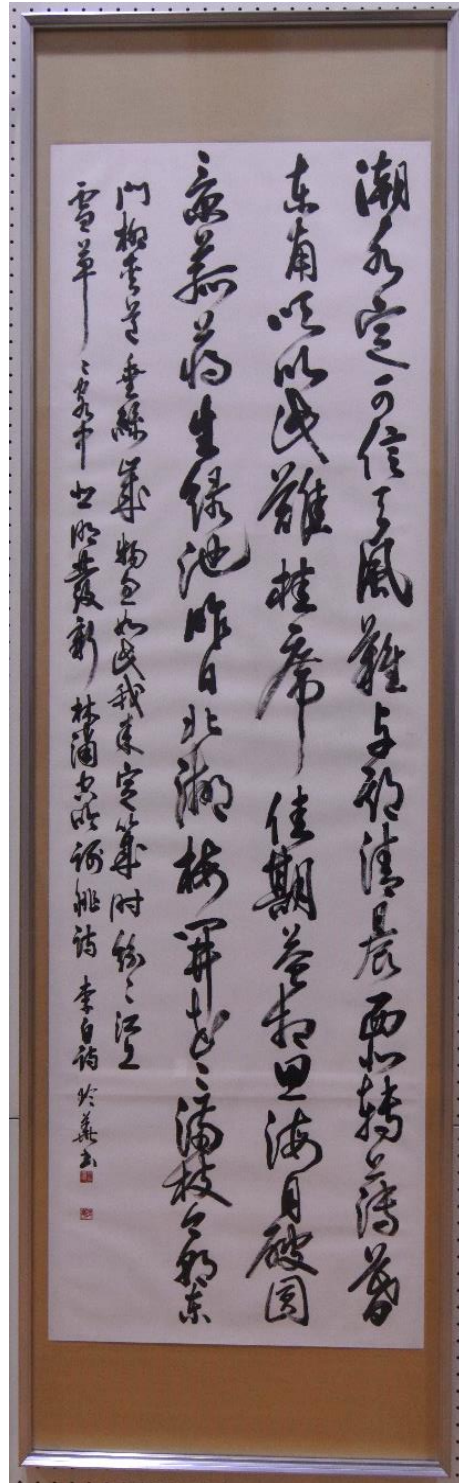 潮水定可信天風難与期清晨西北轉薄暮
東南吹以此難挂席佳期益相思海月破圓
景菰蔣生緑池昨日北湖梅開花已滿枝今朝東
門柳夾道垂絲歳物忽如此我来定幾時紛〻江上
雪草〻客中悲明發新林浦空吟謝朓詩 李白詩 玲華書